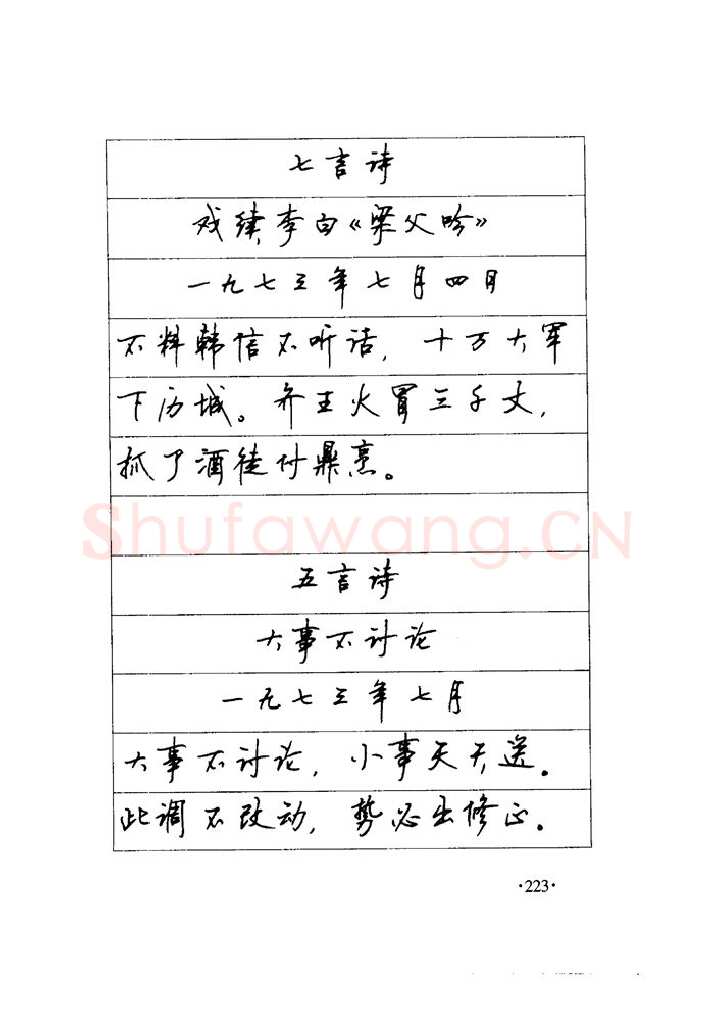 七言诗
戏续李白《梁父吟》
一九七三年七月四日
不料韩信不听话，十万大军
下历城。齐王火冒三千丈，
抓了酒徒付鼎烹。
Shufawang.CN
五言诗
大事不讨论
一九七三年七月
大事不讨论，小事天天送。
此调不改动，势必出修正。
·223·